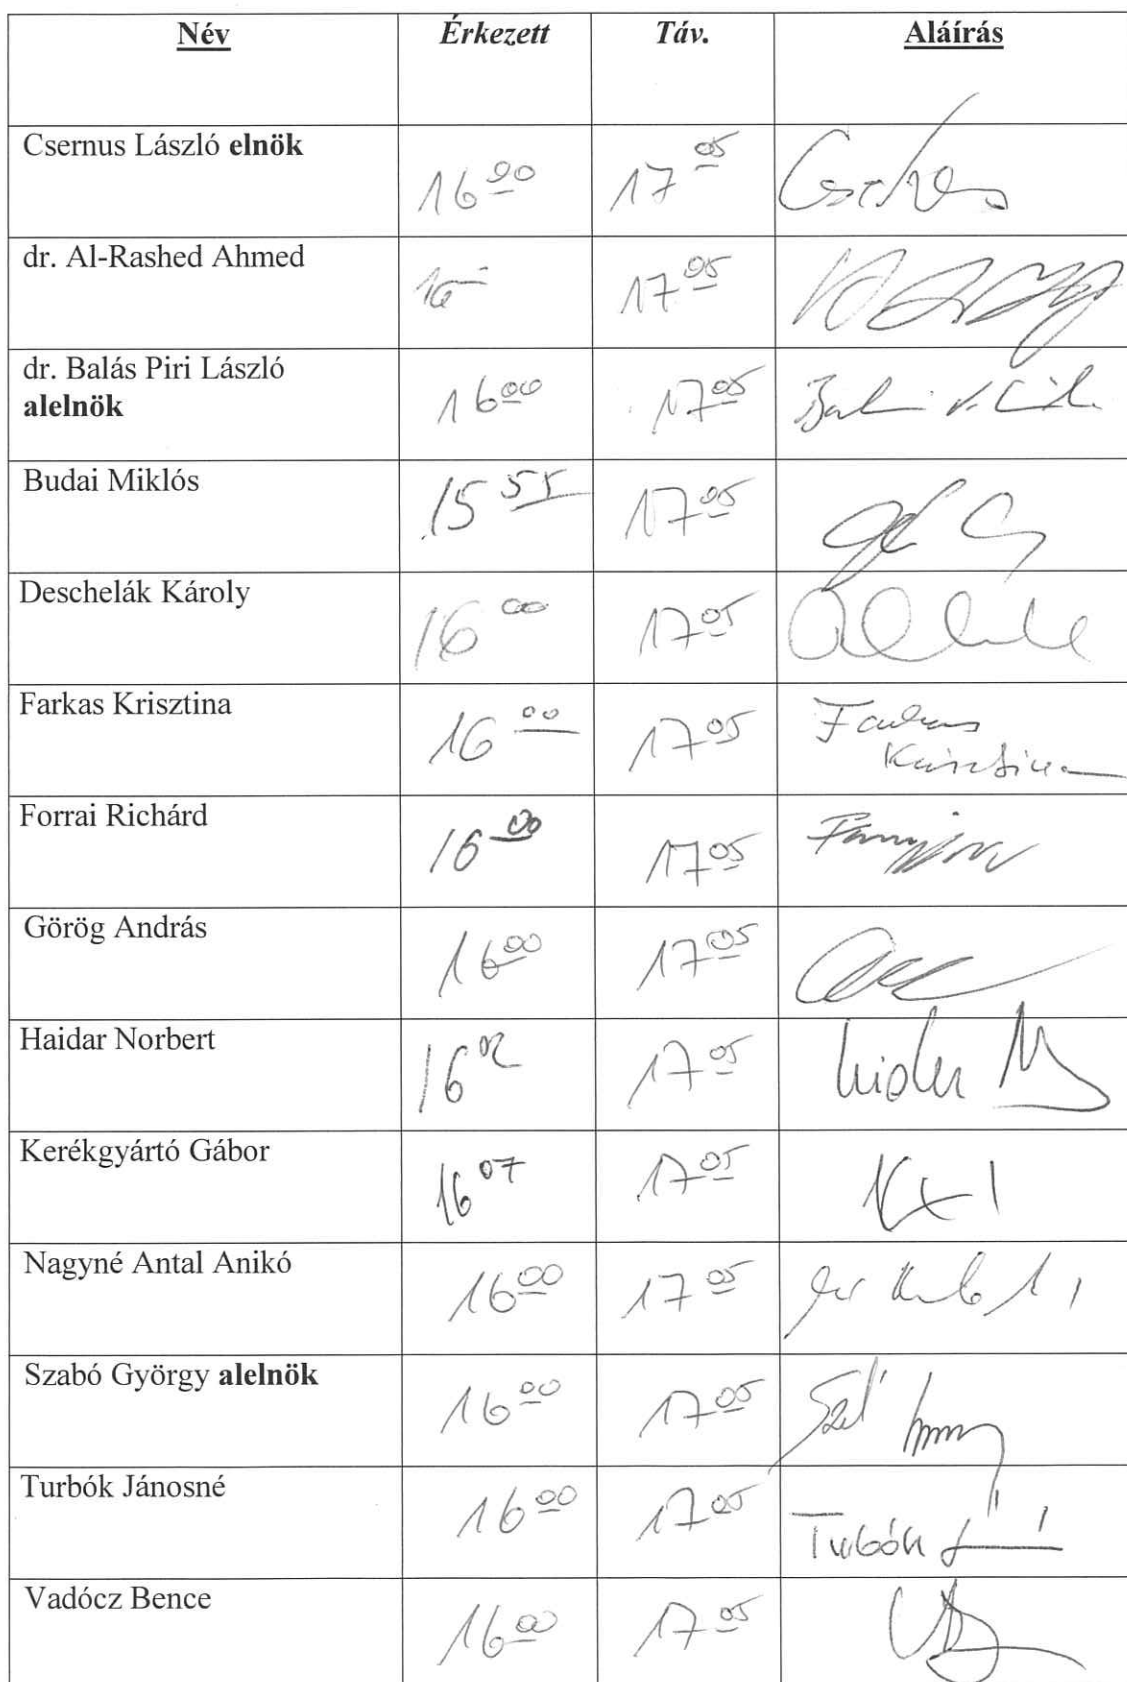 Név Érkezett Táv. Aláírás
Csernus László elnök 16 00 17 05
dr. Al-Rashed Ahmed 16 17 05
dr. Balás Piri László
alelnök 16 00 17 05
Budai Miklós 15 55 17 05
Deschelák Károly 16 00 17 05
Farkas Krisztina 16 00 17 05 Farkas
Krisztina
Forrai Richárd 16 00 17 05
Görög András 16 00 17 05
Haidar Norbert 16 02 17 05
Kerékgyártó Gábor 16 07 17 05
Nagyné Antal Anikó 16 00 17 05
Szabó György alelnök 16 00 17 05
Turbók Jánosné 16 00 17 05 Turbók
Vadócz Bence 16 00 17 05